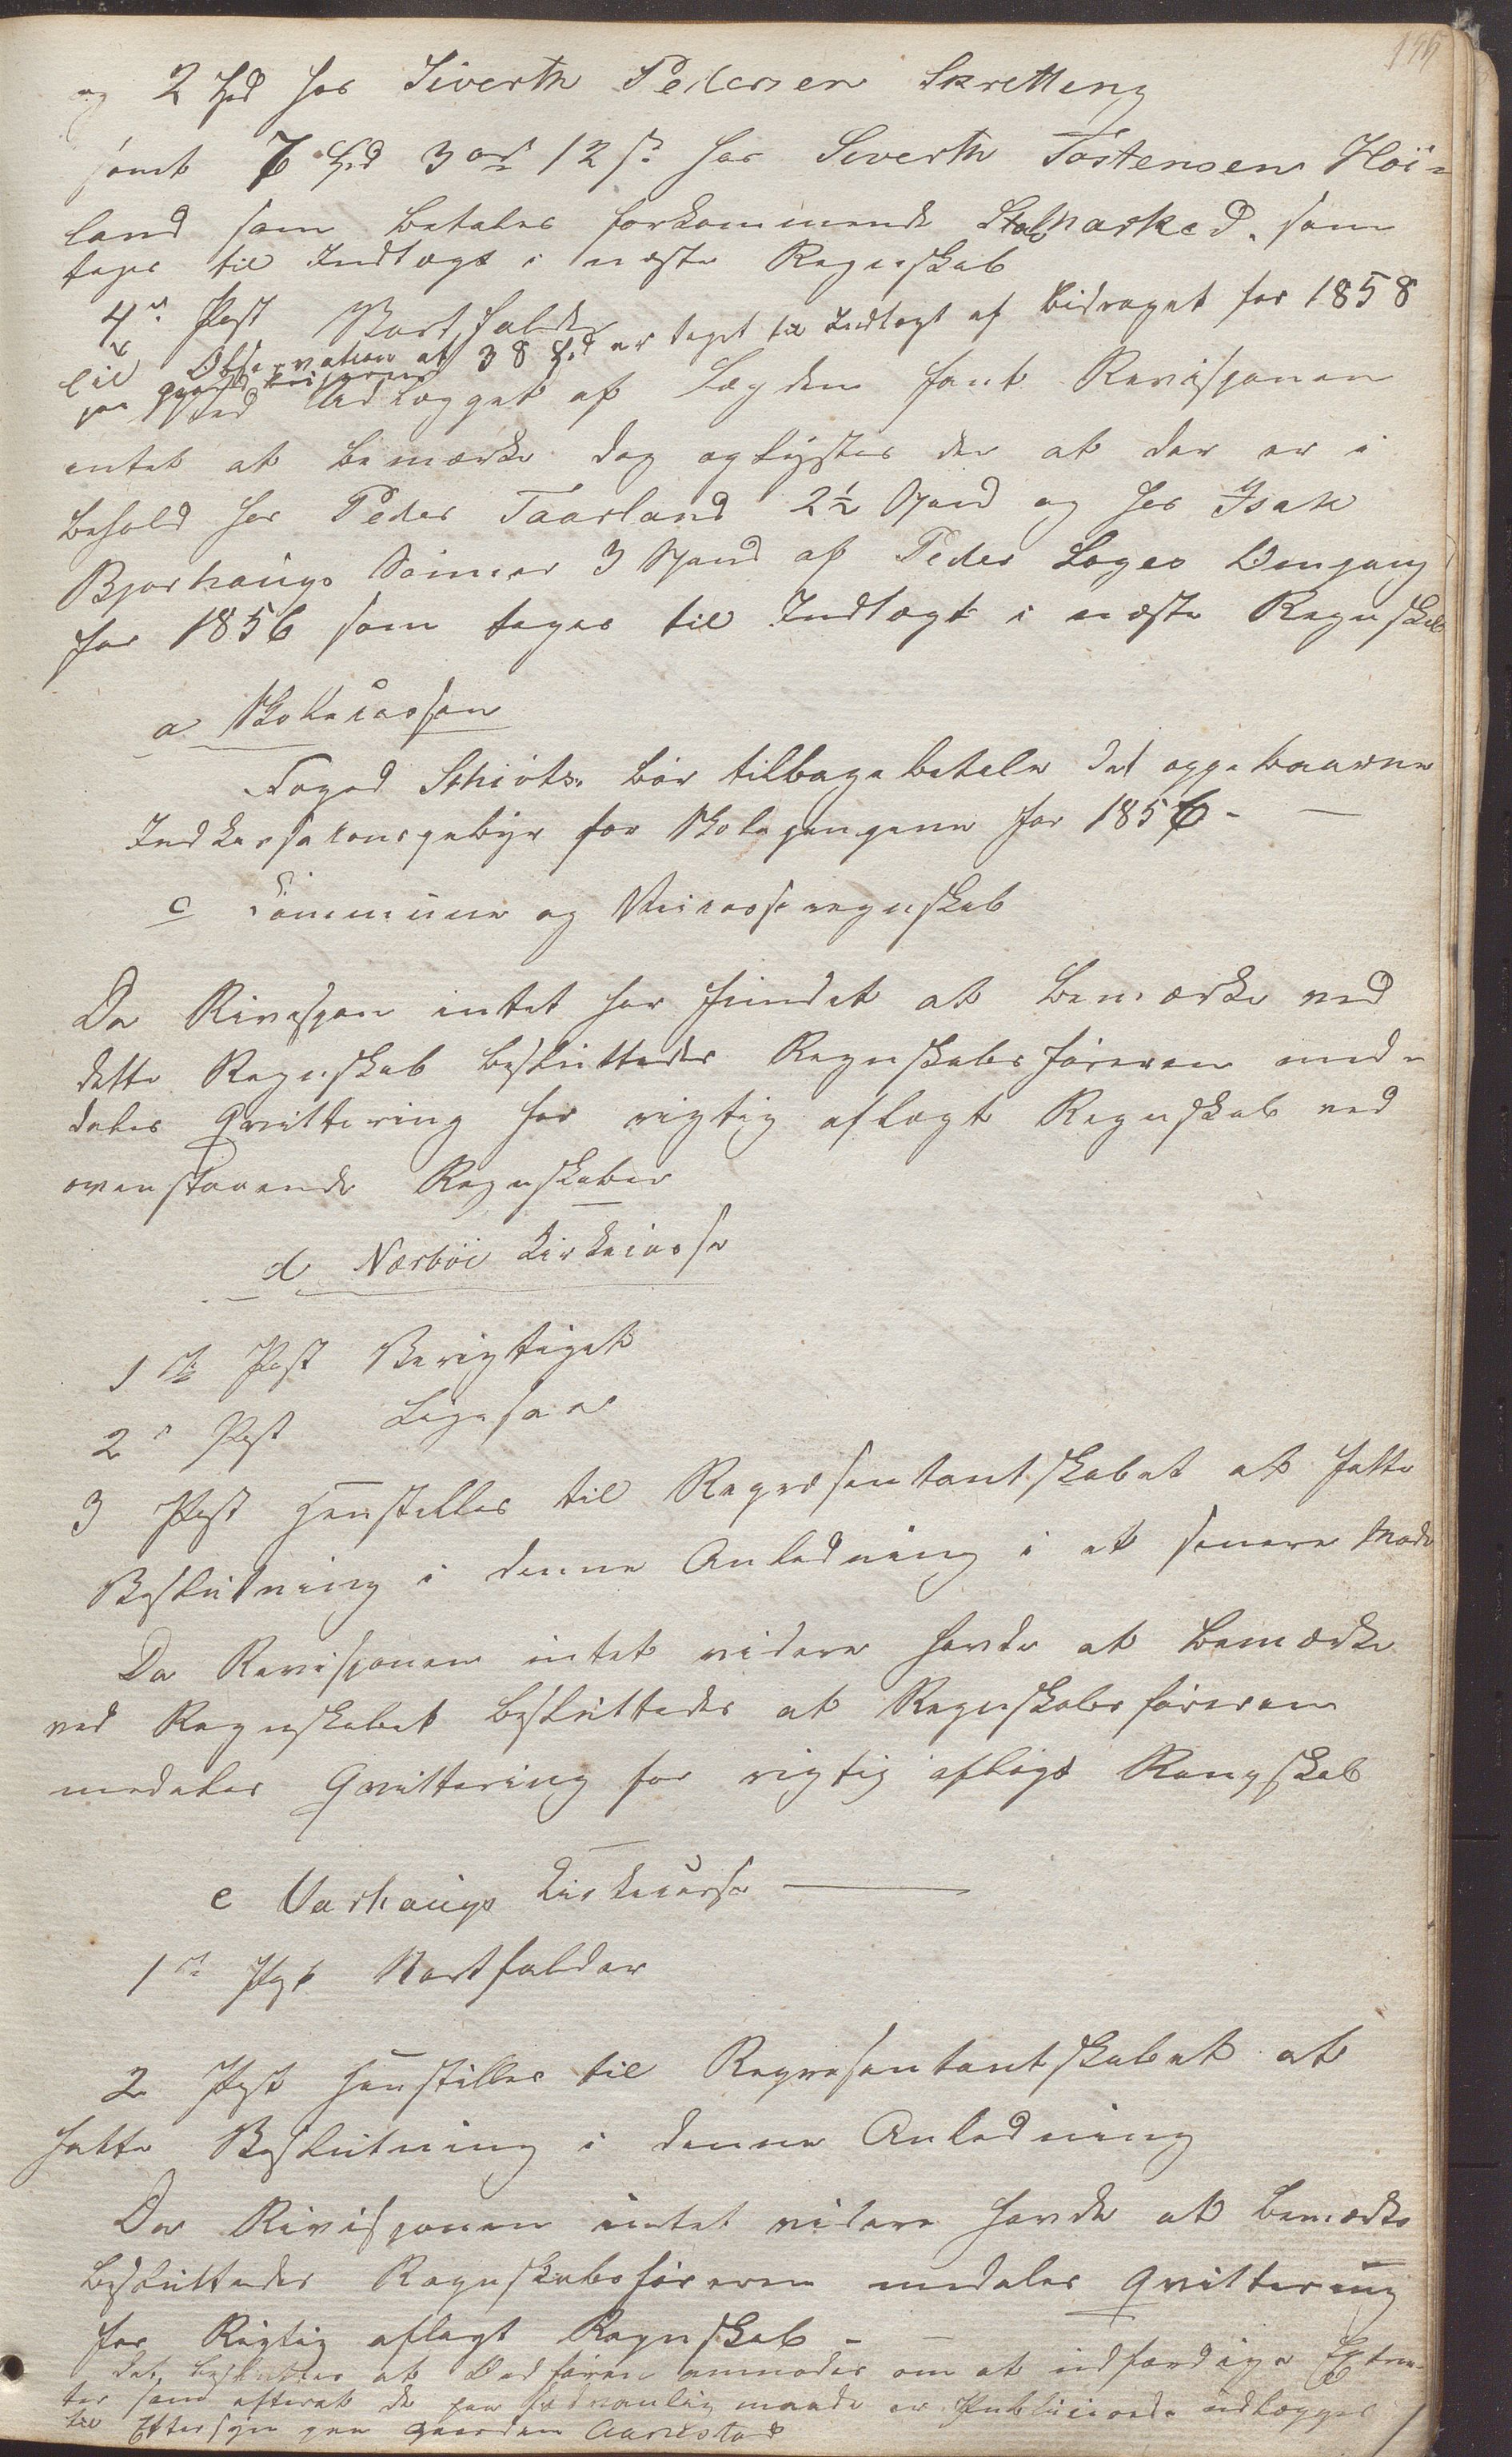 og 2 Spd hos Siverth Pedersen Skretting
samt 7 Spd 3 ort 12 s. hos Siverth Tostensen Höi-
land som betales forkommende Stabmarked. som
tages til Indtægt i næste Regnskab
4de Post Bortfalder
til Observation at 38 Spd er taget til Indtægt af Bidraget for 1858
Ved Udlægget af Lægden fant Revisjonen
intet at bemærke dog oplystes der at der er i
behold hos Peder Taarland 2½ Spand og hos Isak
Bjorhaugs Sönner 3 Spand af Peder Loges Omgang
for 1856 som tages til Indtægt i næste Regnskab
a Skolecassen
Foged Schiötz bör tilbagebetale det oppebaarne
Indkassationsgebyr for Skolepengene for 1856 -
c Commune og Veicasseregnskab
Da Rivisjon intet har fundet at bemærke ved
dette Regnskab besluttedes Regnskabsföreren med-
deles Qvittering for rigtig aflagt Regnskab ved
ovenstaaende Regnskaber
d Nærböe Kirkecasse
1ste Post Berigtiget
2 Post Ligesaa
3 Post Henstilles til Repræsentantskabet at fatte
Beslutning i denne Anledning i et senere Mode
Da Revisjonen intet videre havde at bemærke
ved Regnskabet besluttedes at Regnskabsföreren
medeles Qvittering for rigtig aflagt Rengskab
e Varhaugs Kirkecasse
1ste Post Bortfalder
2 Post Henstilles til Repræsentantskabet at
fatte Beslutning i denne Anledning
Da Rivisjonen intet videre havde at bemærke
besluttedes Regnskabsföreren medeles Qvittering
for Rigtig aflagt Regnskab -
Det besluttes at Ordfören anmodes om at udfærdige Extrac-
ter som efterat de paa sædvanlig maade er Publicerede udlægges
til Eftersyn paa Gaarden Aarestad